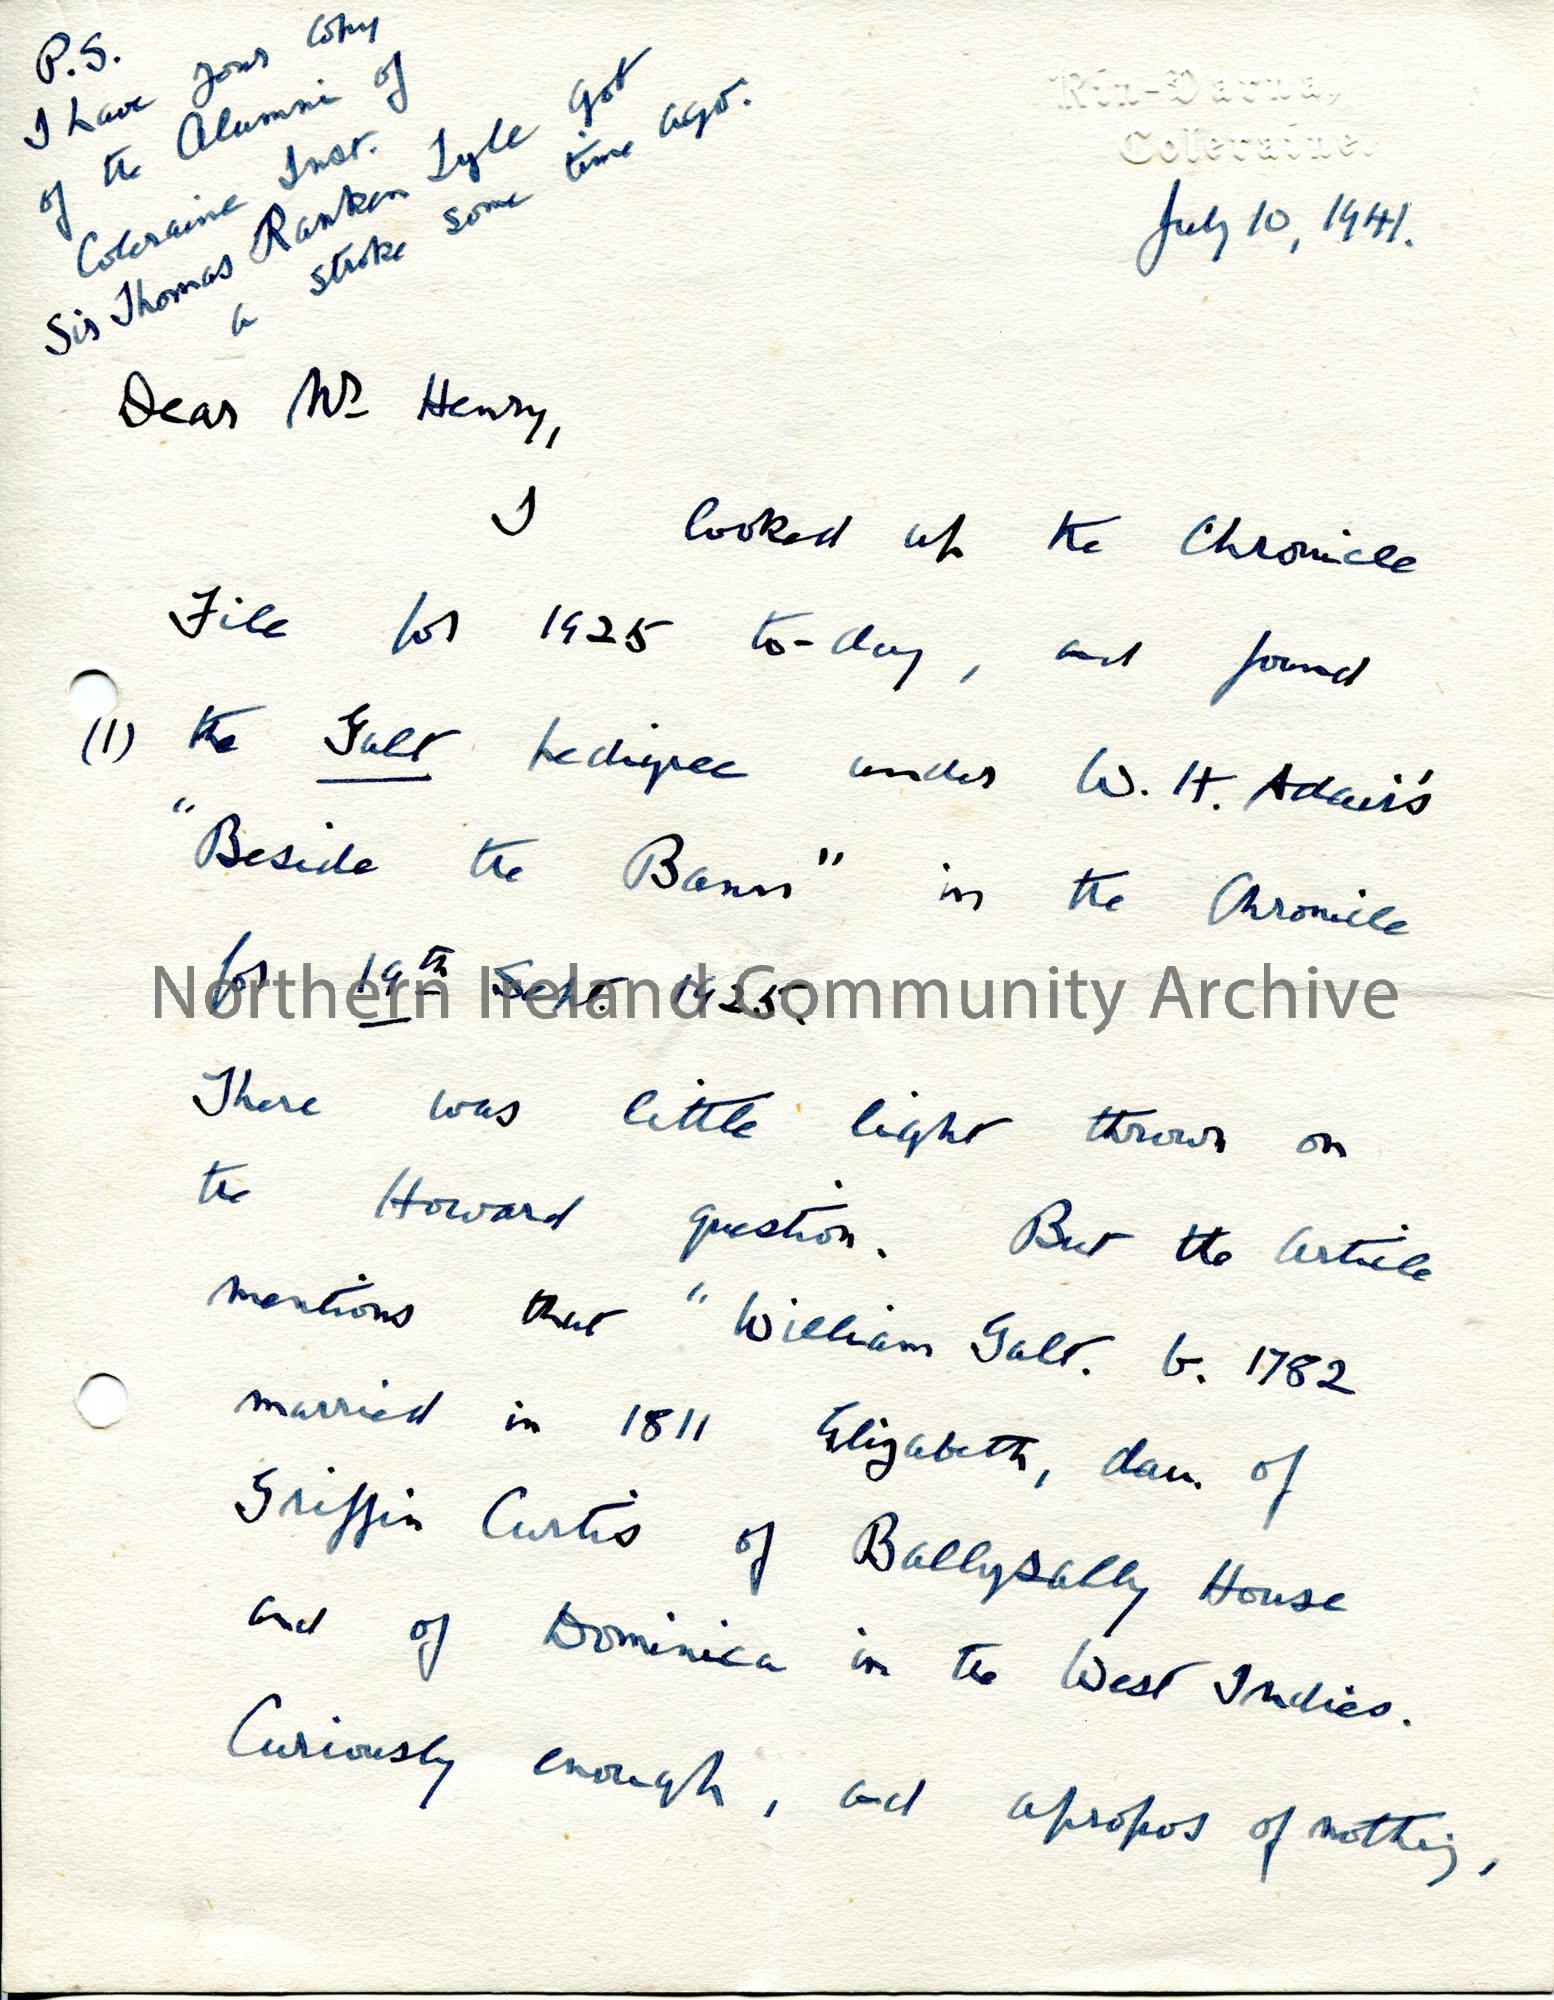 P.S.
I have your copy
of the Alumni of
Coleraine Inst.
Sir Thomas Ranken Lyle got
a stroke some time ago.
Rin-Varna,
Coleraine.
July 10, 1941.
Dear Mr Henry,
I looked up the Chronicle
File for 1925 to-day, and found
(1) the Galt pedigree under W. H. Adair's
"Beside the Bann" in the Chronicle
for 19th Sept. 1925.
There was little light thrown on
the Howard question. But the article
mentions that "William Galt. b. 1782
married in 1811 Elizabeth, dau. of
Griffin Curtis of Ballysally House
and of Dominica in the West Indies.
Curiously enough, and apropos of nothing,
Northern Ireland Community Archive